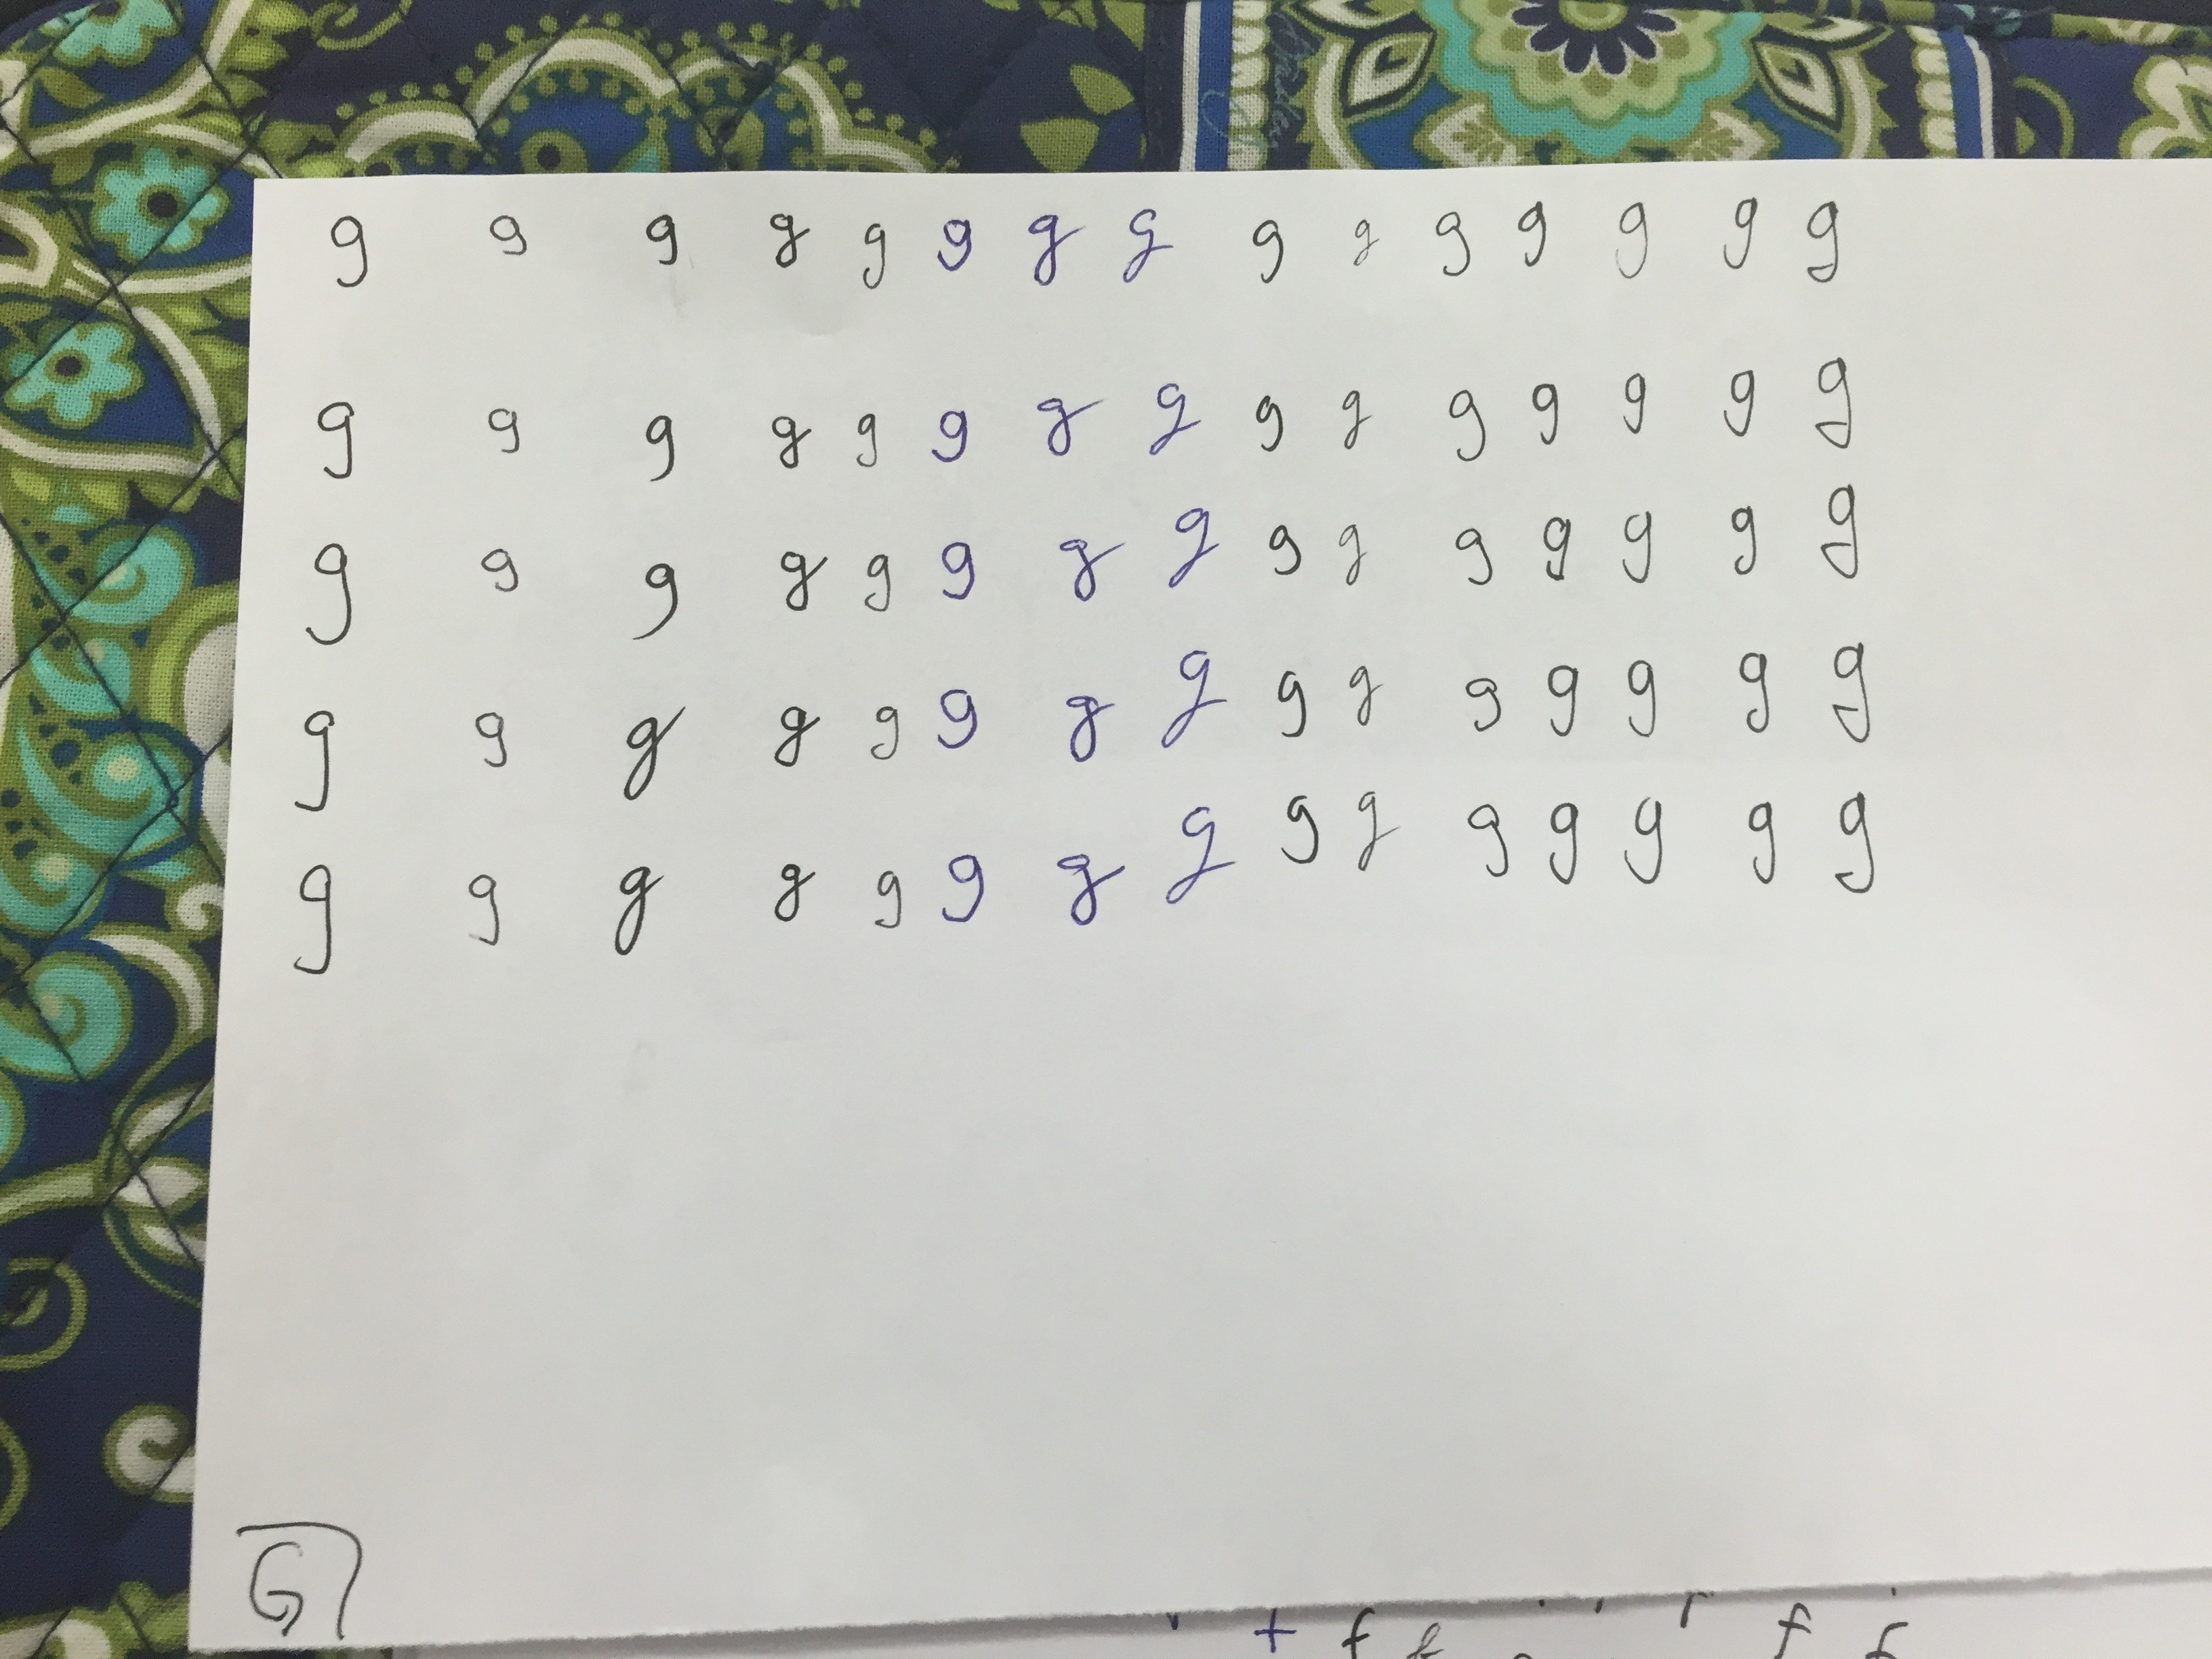 g g g g g g g g g g g g g g g
g g g g g g g g g g g g g g g
g g g g g g g g g g g g g g g
g g g g g g g g g g g g g g g
g g g g g g g g g g g g g g g
G
f f f